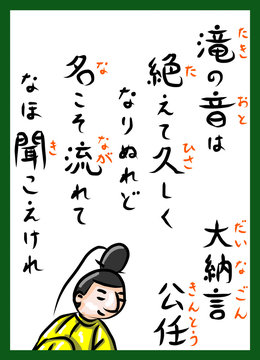 滝の音は
絶えて久しく
なりぬれど
名こそ流れて
なほ聞こえけれ
大納言
公任
たき
おと
た
ひさ
な
なが
き
だいなごん
きんとう